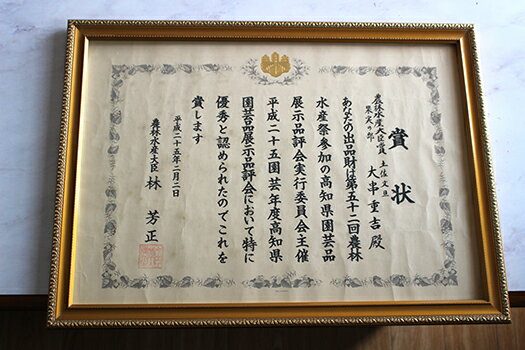 賞状
農林水産大臣賞 土佐文旦
果実の部
大串重吉殿
あなたの出品財は第五十二回農林
水産祭参加の高知県園芸品
展示品評会実行委員会主催
平成二十五園芸年度高知県
園芸品展示品評会において特に
優秀と認められたのでこれを
賞します
平成二十五年二月二日
農林水産大臣 林芳正